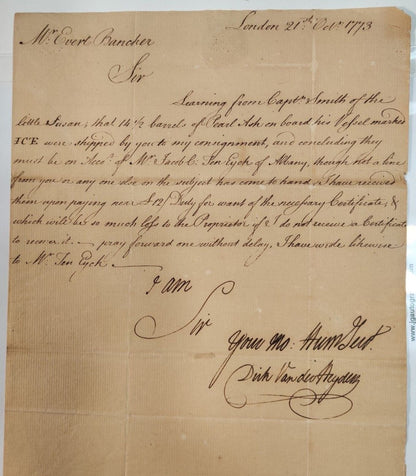 London 21st Octr. 1773
Mr. Evert Bancker
Sir
Learning from Captn. Smith of the
little Susan, that 14 1/2 barrels of Pearl Ash on board his Vessel marked
ICE were shipped by you to my consignment, and concluding they
must be on Accot. of Mr. Jacob C. Ten Eyck of Albany, though not a line
from you or any one else on the subject has come to hand, I have received
them upon paying near £12/ Duty for want of the necessary Certificate; &
which will be so much Loss to the Proprietor if I do not receive a Certificate
to recover it. pray forward one without delay, I have wrote likewise
to Mr. Ten Eyck
I am
Sir
Your Mo: Hum Servt.
Dirk Van der Heyden